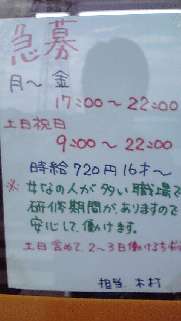 急募
月～金
17:00～22:00
土日祝日
9:00～22:00
時給720円16才～
※女なの人が多い職場で
研修期間がありますので
安心して働けます。
土日含めて2～3日働ける
担当 木村